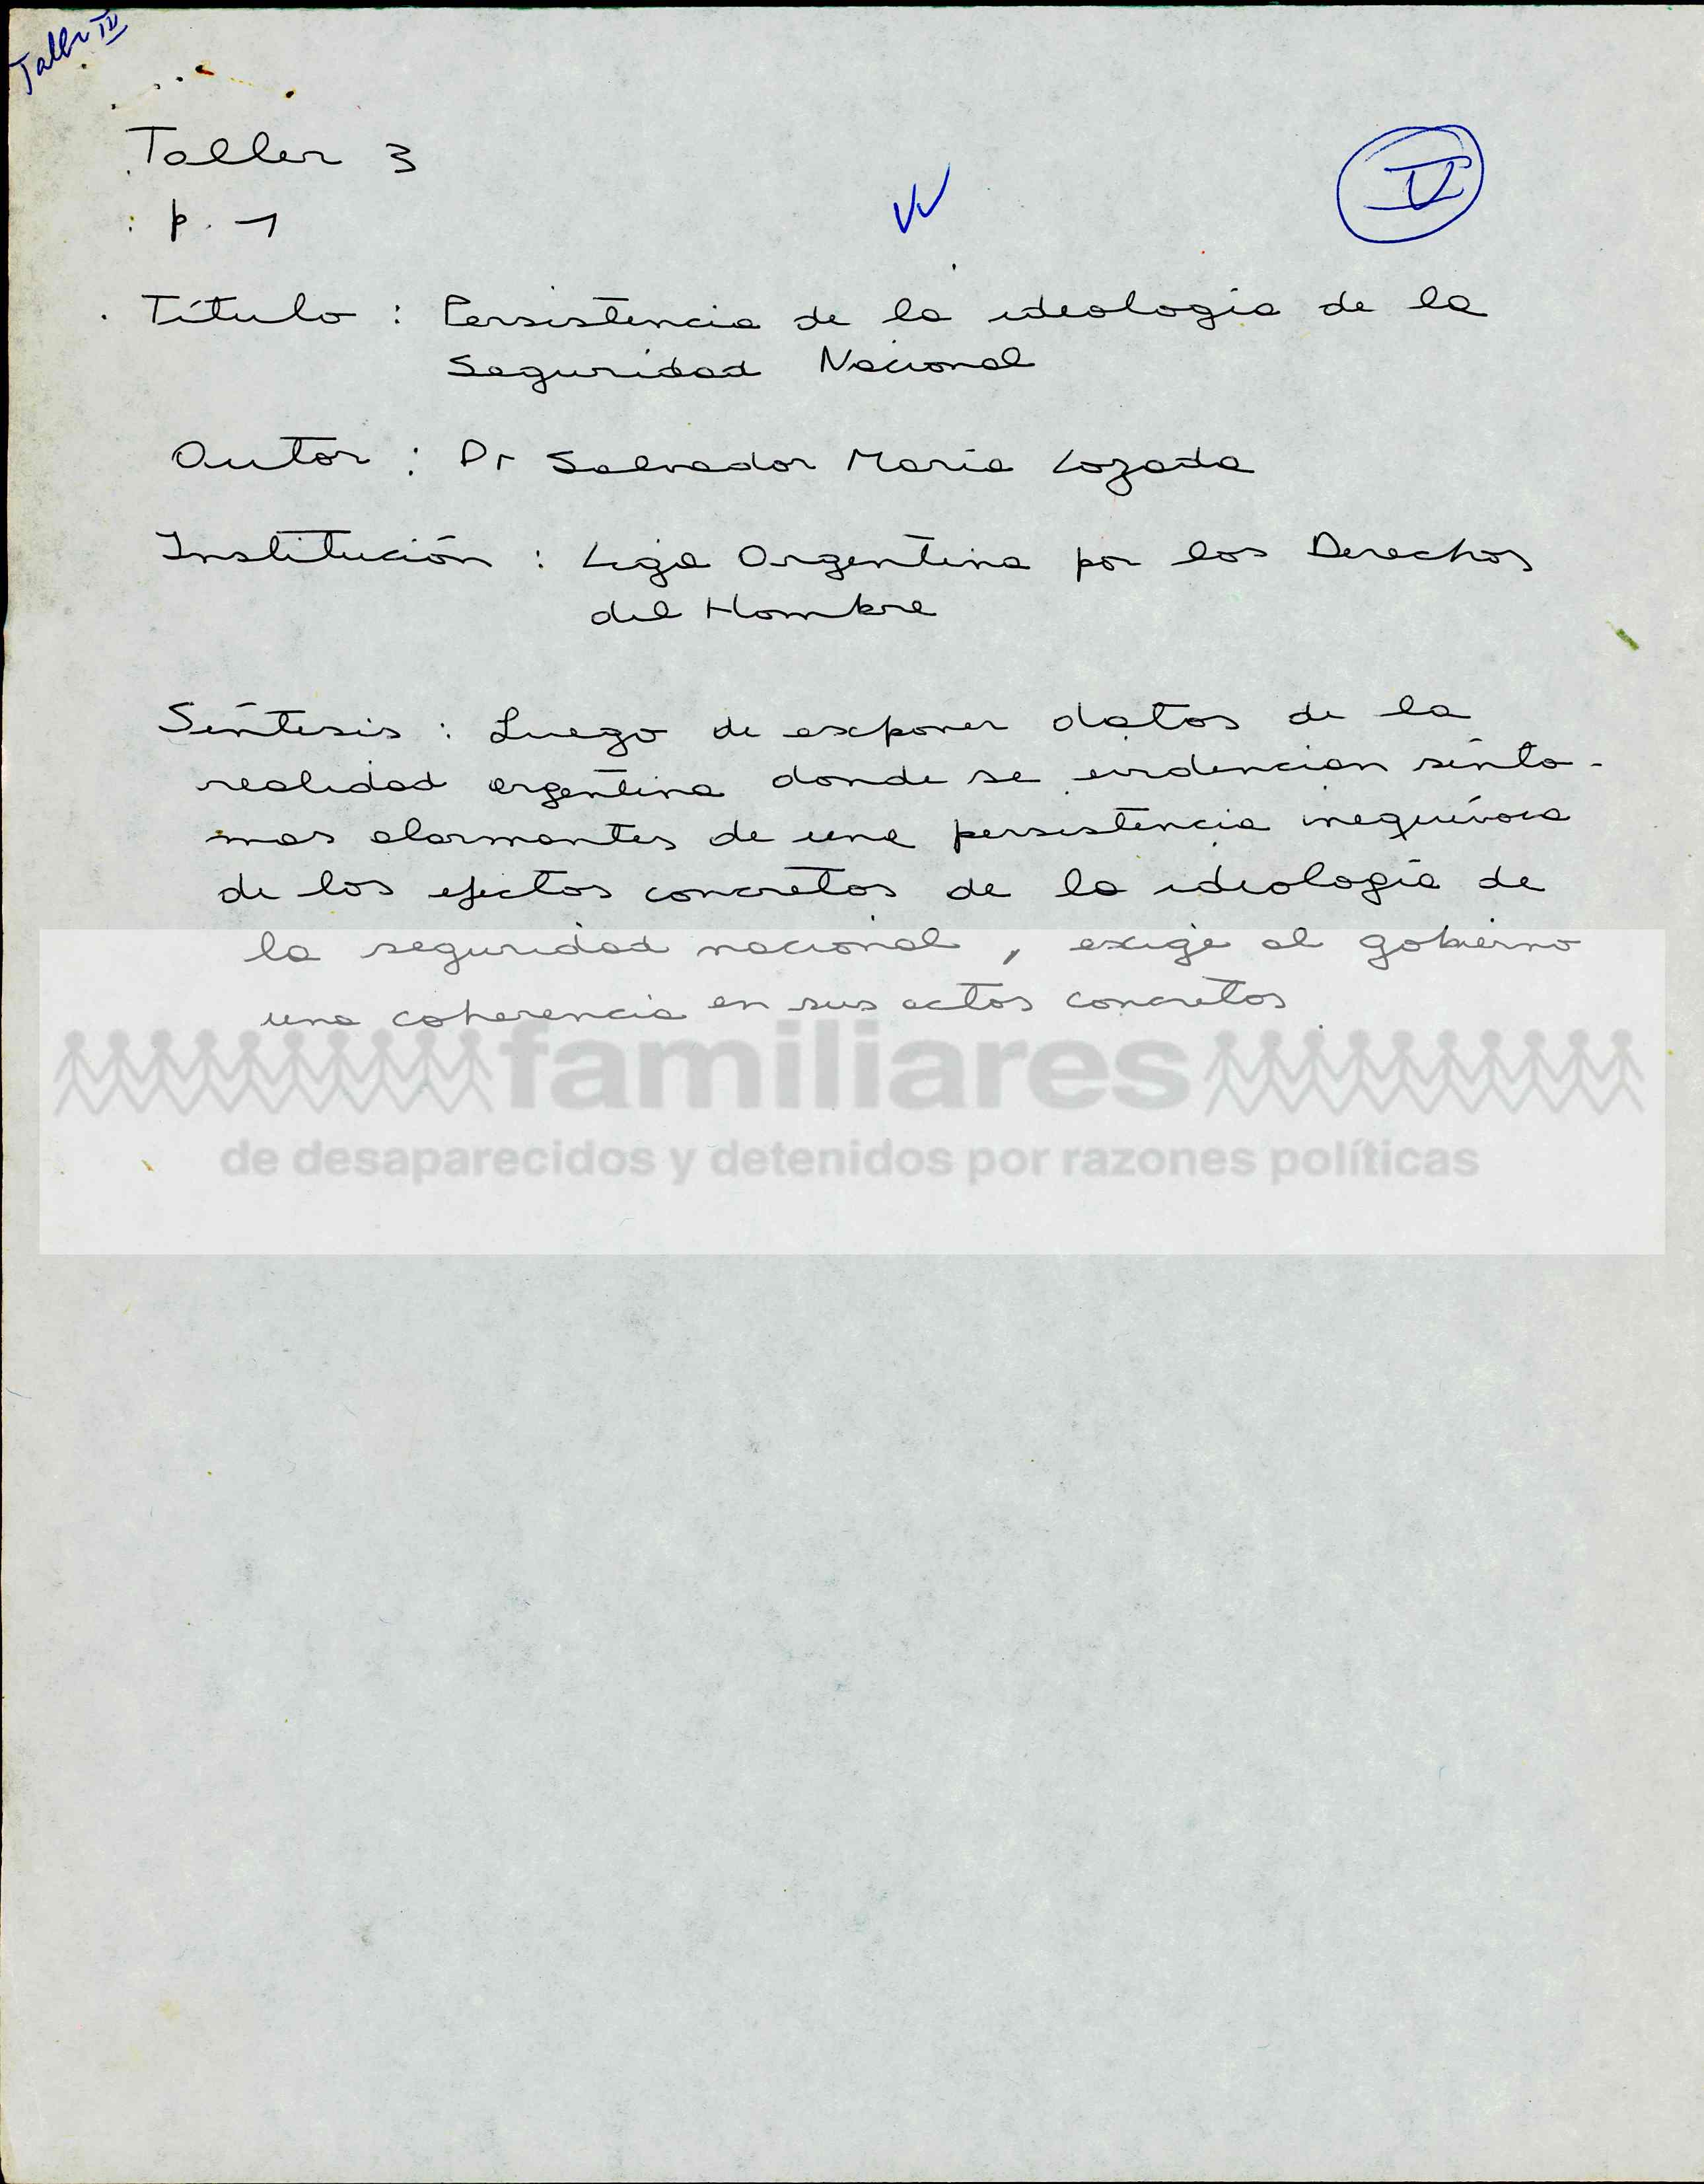 Taller IV
Taller 3
IV
p. 1
Título : Persistencia de la ideología de la
Seguridad Nacional
Autor : Dr Salvador María Lozada
Institución : Liga Argentina por los Derechos
del Hombre
Síntesis : Luego de exponer datos de la
realidad argentina donde se evidencian sínto-
mas alarmantes de una persistencia inequívoca
de los efectos concretos de la ideología de
la seguridad nacional, exige al gobierno
una coherencia en sus actos concretos.
familiares
de desaparecidos y detenidos por razones políticas